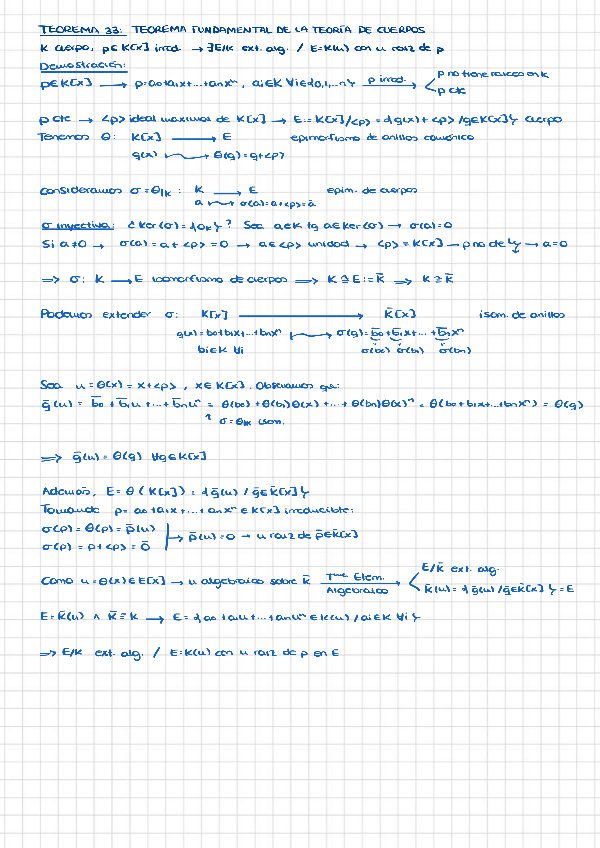 TEOREMA 33: TEOREMA FUNDAMENTAL DE LA TEORÍA DE CUERPOS
K cuerpo, p∈K[x] irred. → ∃E/K ext. alg. / E=K(u) con u raíz de p
Demostración:
p∈K[x] → p=a₀+a₁x+...+aₙxⁿ, aᵢ∈K ∀i∈{0,1,...n} p irred. → p no tiene raíces en K
p cte
p cte → <p> ideal maximal de K[x] → E:=K[x]/<p> = {g(x)+<p> /g∈K[x]} cuerpo
Tenemos θ: K[x] → E epimorfismo de anillos canónico
g(x) → θ(g)=g+<p>
Consideramos σ=θ|K : K → E epim. de cuerpos
a → σ(a)=a+<p>=ā
σ inyectiva: ¿Ker(σ)={0K}? Sea a∈K tq a∈Ker(σ) → σ(a)=0
Si a≠0 → σ(a)=a+<p>=0 → a∈<p> unidad → <p>=K[x] → p no de → a=0
⇒ σ: K → E isomorfismo de cuerpos ⇒ K≅E:=K̄ ⇒ K≅K̄
Podemos extender σ: K[x] → K̄[x] isom. de anillos
g(x)=b₀+b₁x+...+bₙxⁿ → σ(g)=b̄₀+b̄₁x+...+b̄ₙxⁿ
bᵢ∈K ∀i σ(b₀) σ(b₁) σ(bₙ)
Sea u=θ(x)=x+<p>, x∈K[x]. Observamos que:
ḡ(u)= b̄₀+b̄₁u+...+b̄ₙuⁿ = θ(b₀)+θ(b₁)θ(x)+...+θ(bₙ)θ(x)ⁿ = θ(b₀+b₁x+...+bₙxⁿ) = θ(g)
↑ σ=θ|K ison.
⇒ ḡ(u)=θ(g) ∀g∈K[x]
Además, E=θ(K[x])={ḡ(u) / ḡ∈K̄[x]}
Tomando p=a₀+a₁x+...+aₙxⁿ∈K[x] irreducible:
σ(p)=θ(p)=p̄(u)
σ(p)=p+<p>=0̄ → p̄(u)=0 → u raíz de p̄∈K̄[x]
Como u=θ(x)∈E[x] → u algebraico sobre K̄ Tma Elem. Algebraico → E/K̄ ext. alg.
K̄(u)={ḡ(u)/ḡ∈K̄[x]}=E
E=K̄(u) ∧ K̄≅K → E={a₀+a₁u+...+aₙuⁿ∈K(u)/aᵢ∈K ∀i}
⇒ E/K ext. alg. / E=K(u) con u raíz de p en E